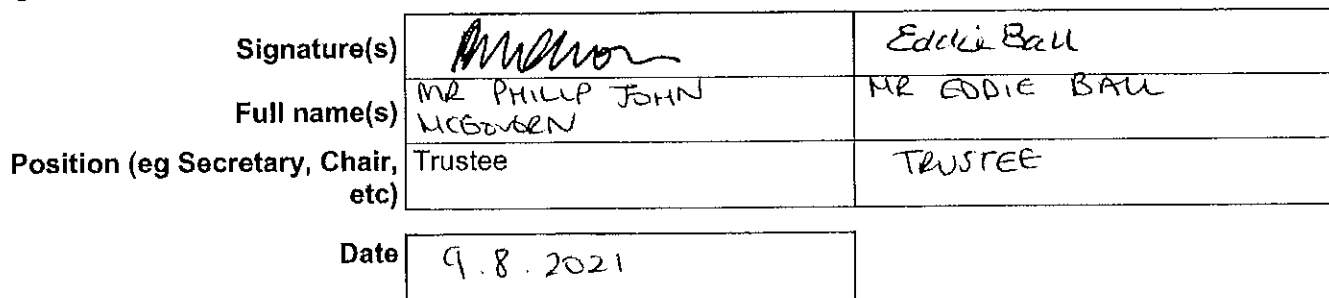 Signature(s) Eddie Ball
Full name(s) MR PHILLIP JOHN MCGOVERN MR EDDIE BALL
Position (eg Secretary, Chair, etc) Trustee TRUSTEE
Date 9.8.2021